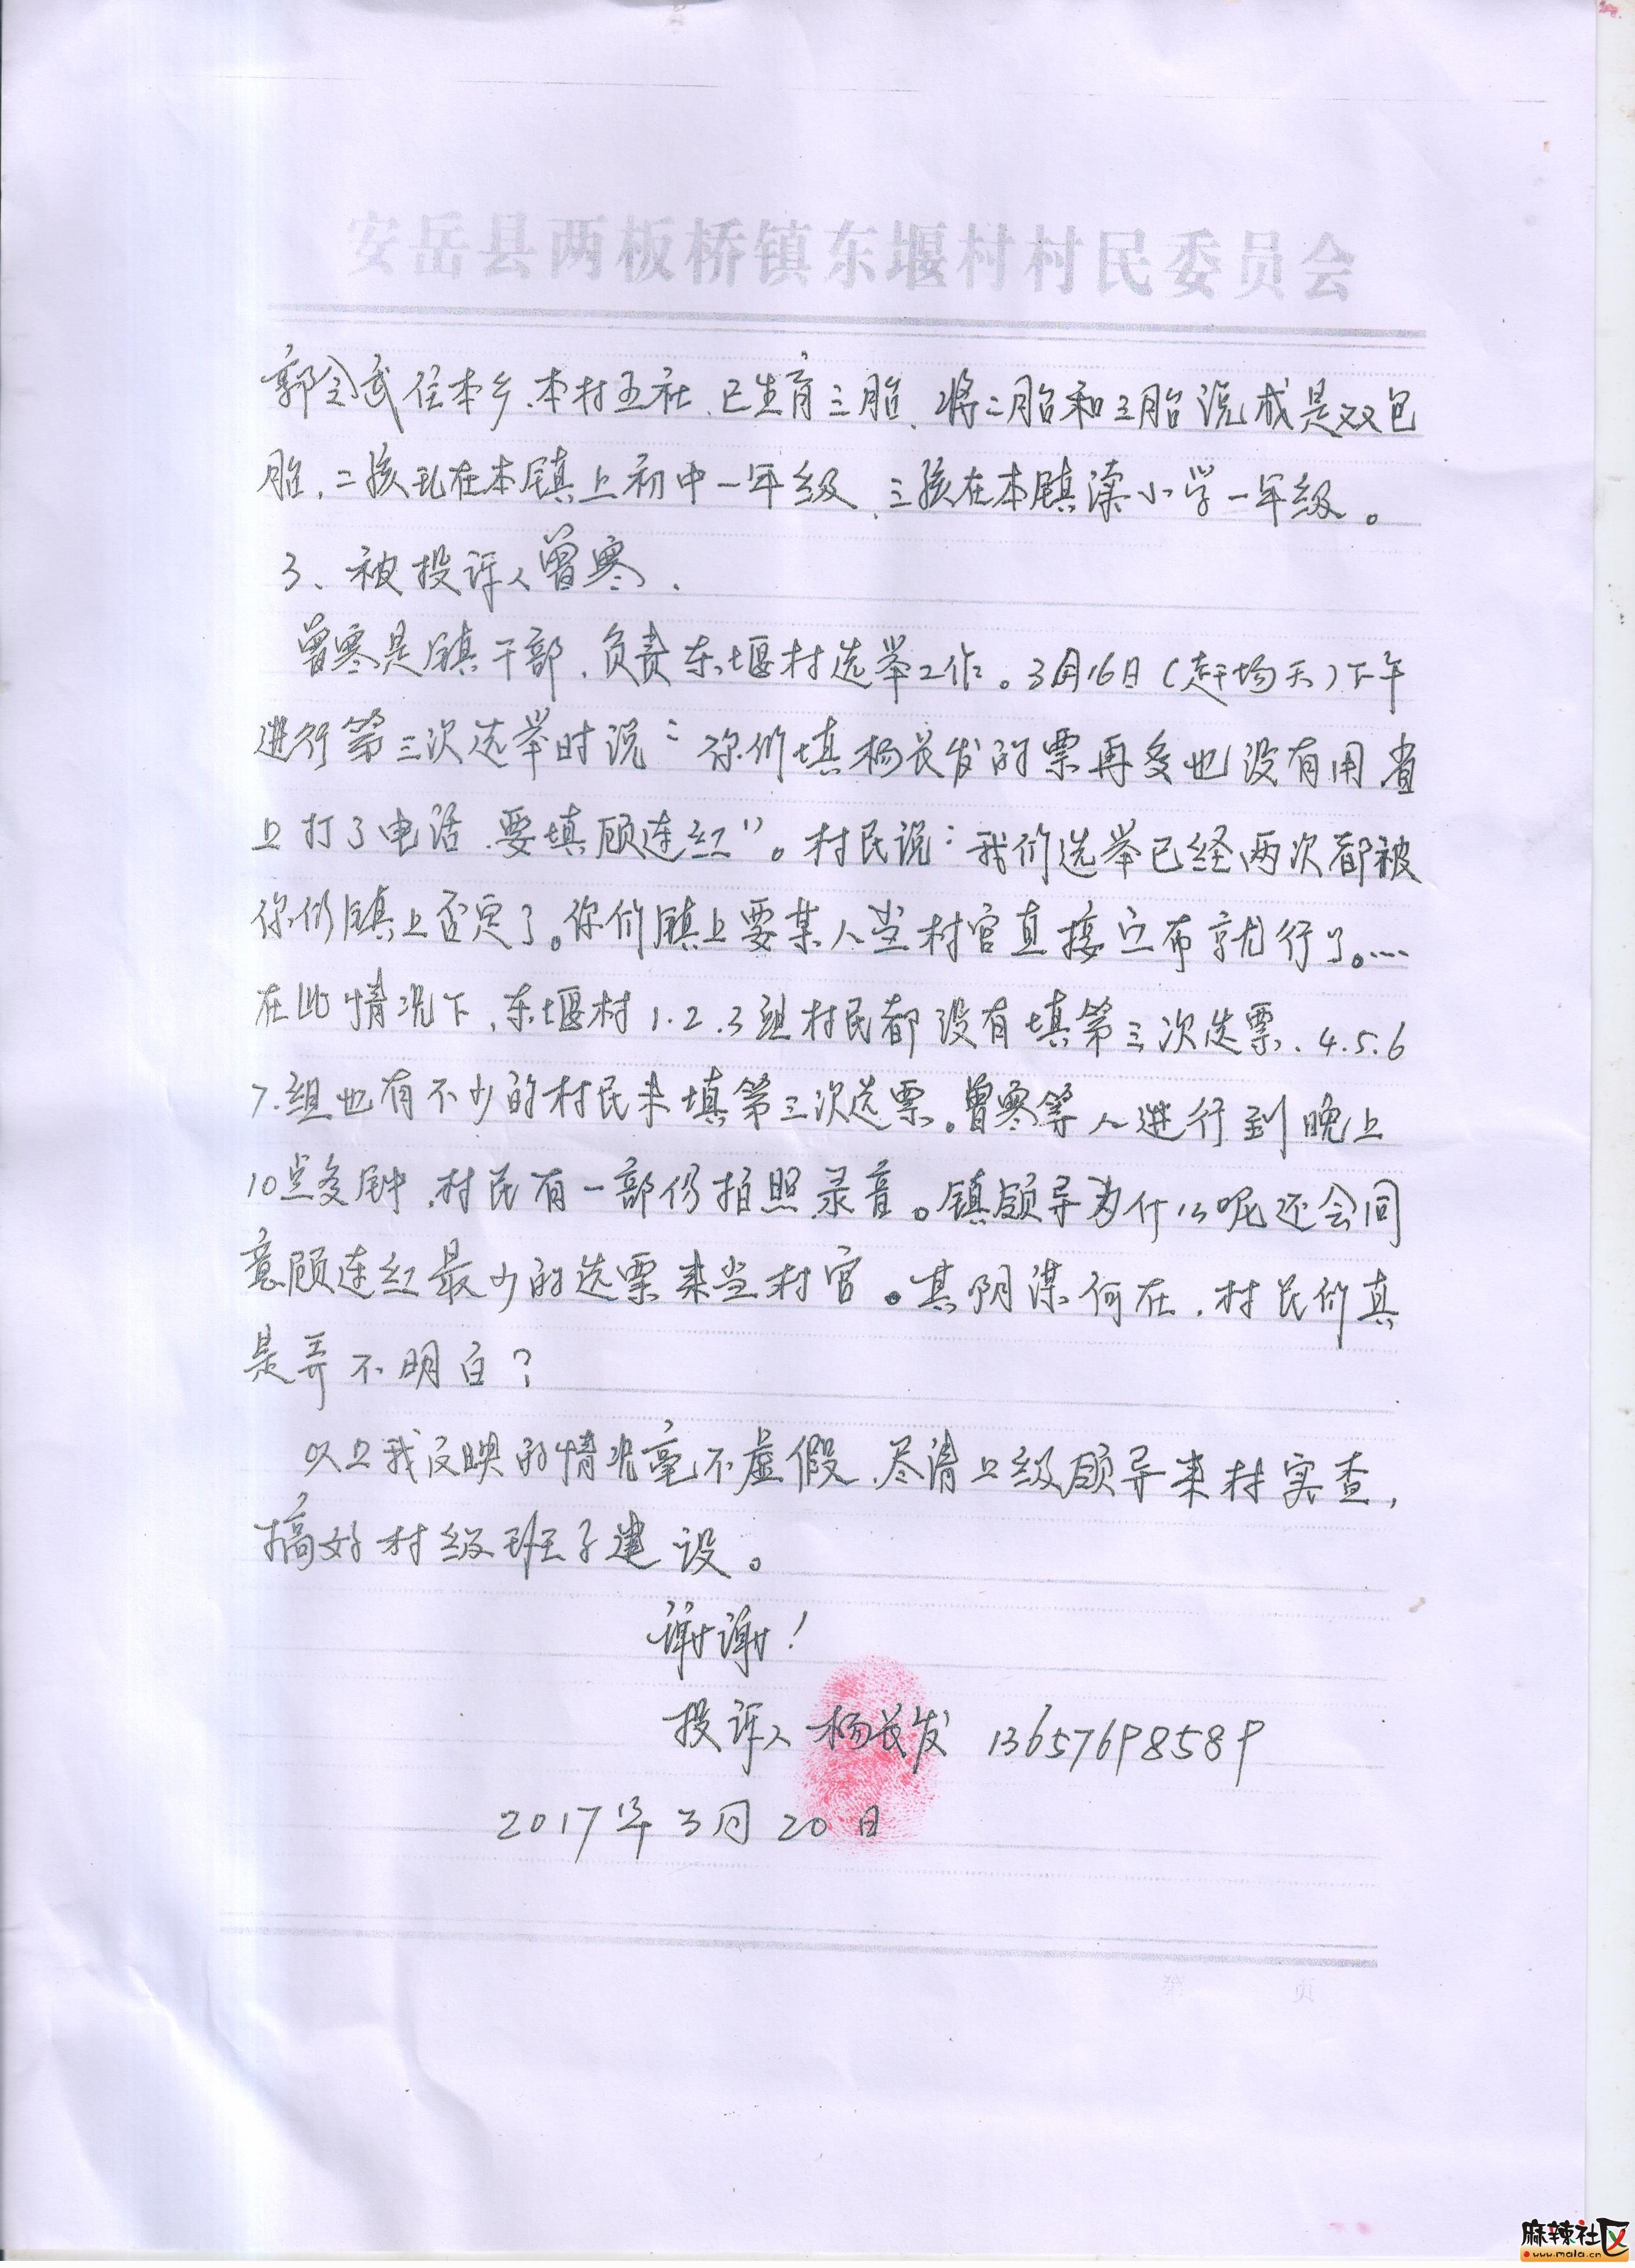 安岳县两板桥镇东堰村村民委员会
郭全武住本乡、本村五社、已生育三胎、将二胎和三胎说成是双包
胎，二孩现在本镇上初中一年级、三孩在本镇读小学一年级。
3、被投诉人曾寒．
曾寒是镇干部，负责东堰村选举工作。3月16日（赶场天）下午
进行第三次选举时说“你们填杨长发的票再多也没有用省
上打了电话、要填顾连红”。村民说：我们选举已经两次都被
你们镇上否定了。你们镇上要某人当村官直接宣布就行了。……
在此情况下，东堰村1.2.3组村民都没有填第三次选票、4.5.6
7.组也有不少的村民未填第三次选票。曾寒等人进行到晚上
10点多钟，村民有一部份拍照录音。镇领导为什么呢还会同
意顾连红最少的选票来当村官。其阴谋何在，村民们真
是弄不明白？
以上我反映的情况毫不虚假、尽请上级领导来村实查，
搞好村级班子建设。
谢谢！
投诉人 杨长发 13657698589
2017年3月20日
第 页
麻辣社区
www.mala.cn